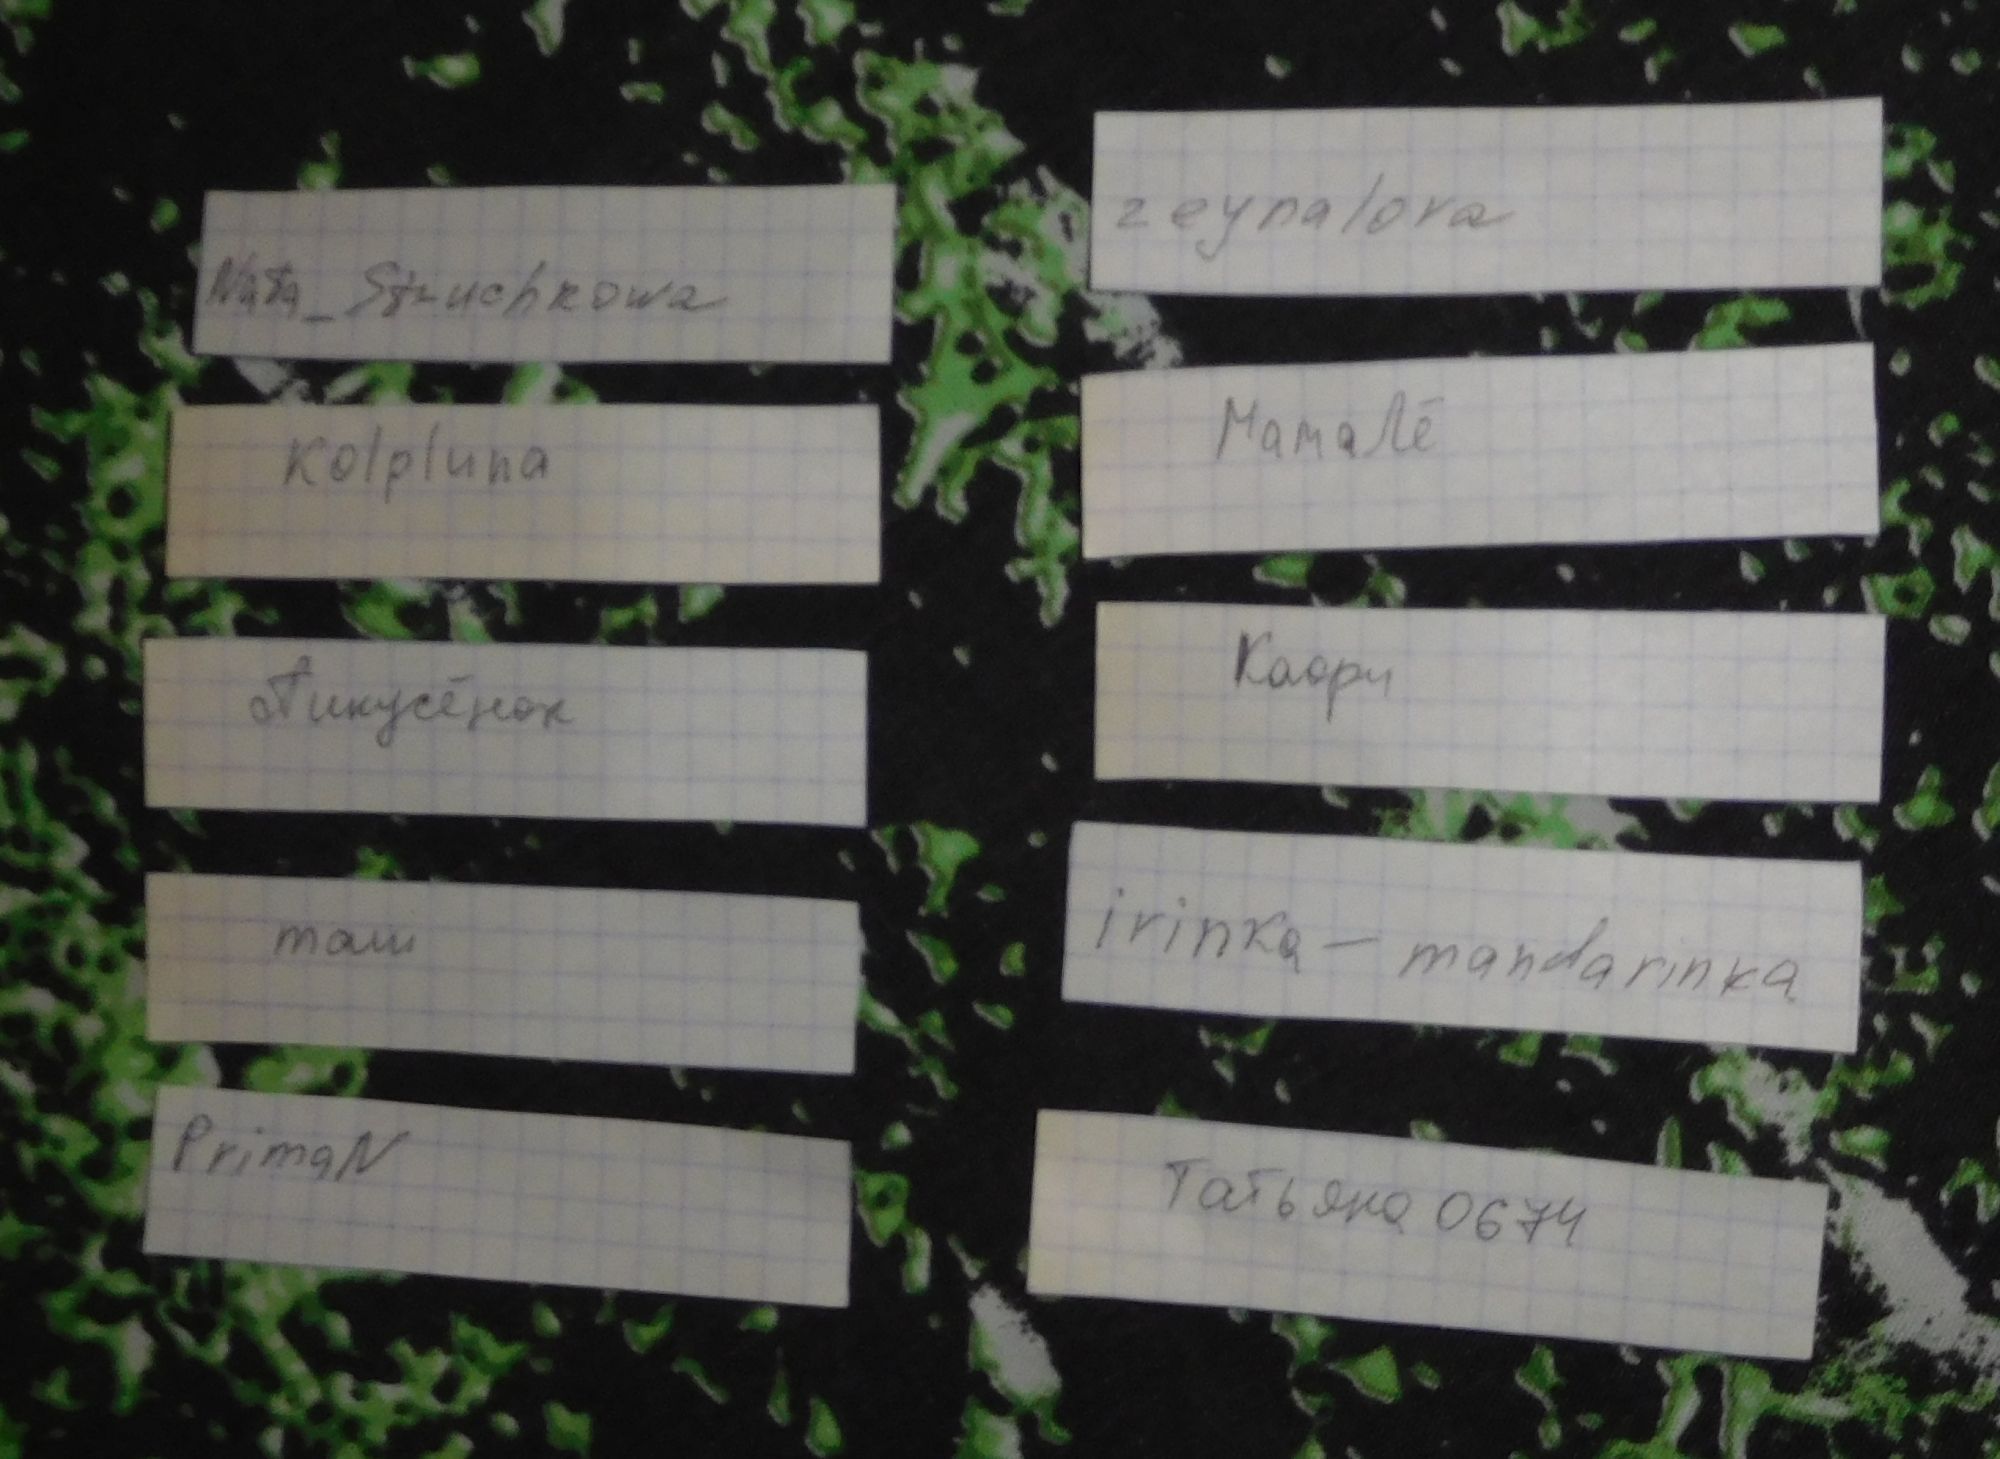 Nata_Struchkowa
Kolpluna
Пикусёнок
таш
PrimaN
zeynalova
МамаЛё
Каори
irinka-mandarinka
Татьяна 0674